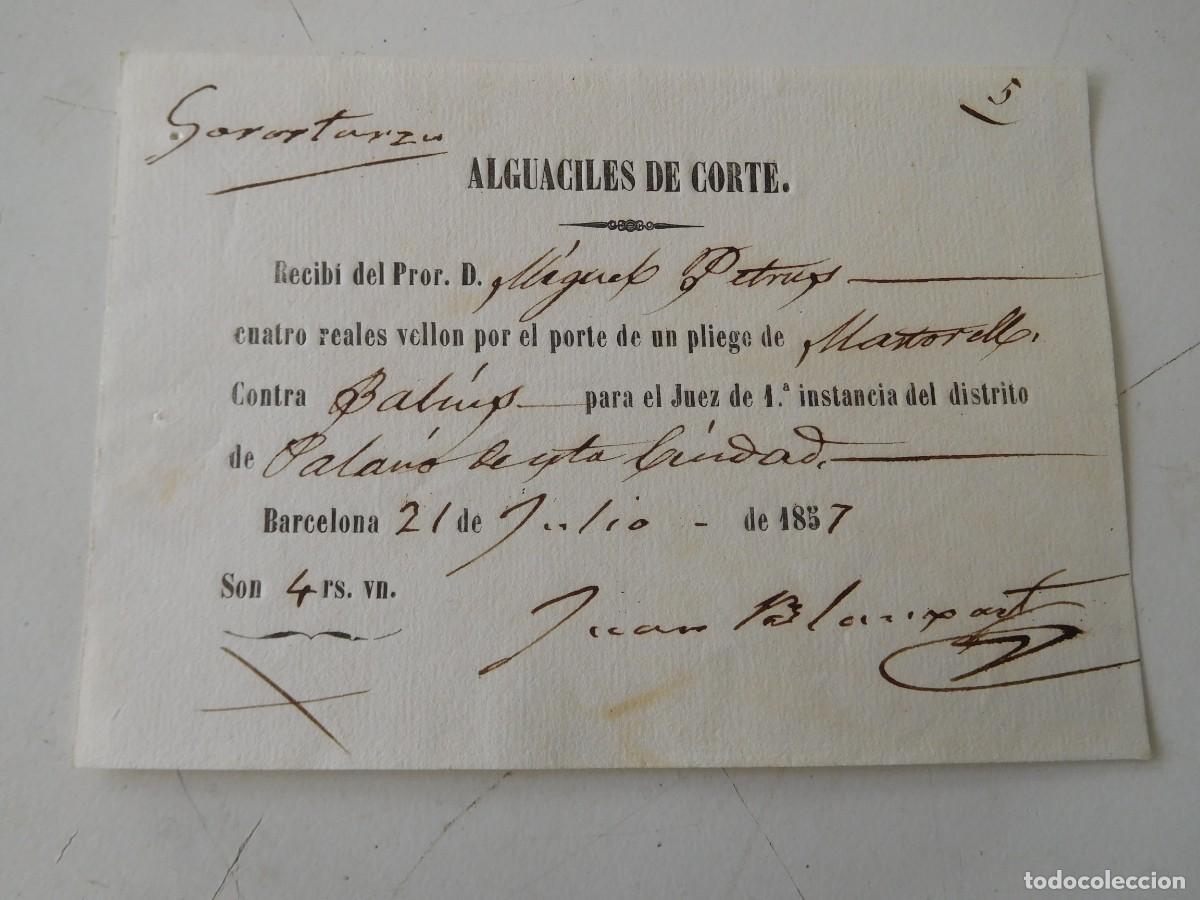 Gorostarzu
5
ALGUACILES DE CORTE.
Recibí del Pror. D. Miguel Petrus
cuatro reales vellon por el porte de un pliege de Martorell.
Contra Balius para el Juez de 1.ª instancia del distrito
de Palacio de esta Ciudad.
Barcelona 21 de Julio - de 1857
Son 4 rs. vn.
Juan Blanxart
todocoleccion